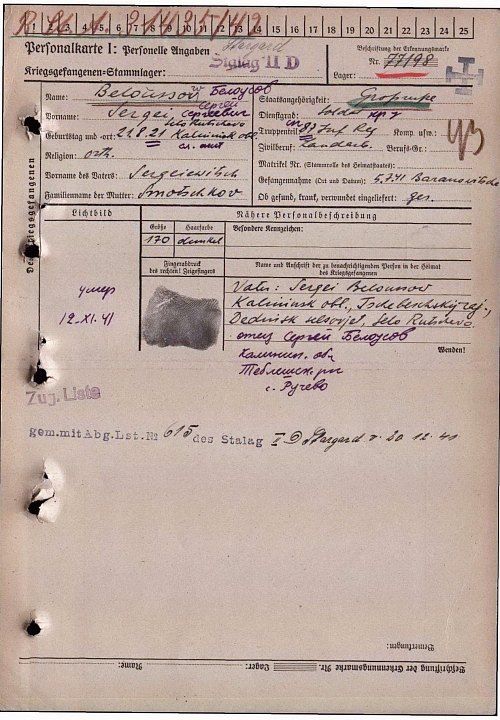 R. St. A. 21425/42
2 3 4 5 6 7 8 9 10 11 12 13 14 15 16 17 18 19 20 21 22 23 24 25
Personalkarte I: Personelle Angaben
Stargard
Stalag II D
Kriegsgefangenen-Stammlager:
Beschriftung der Erkennungsmarke
Nr. 77198
Lager:
Name: Beloussow Белоусов
Vorname: Sergei, Сергей Сергеевич
Geburtstag und -ort: 21.8.21 Kalininsk obl.
Religion: orth.
Vorname des Vaters: Sergeiewitsch
Familienname der Mutter:
Staatsangehörigkeit:
Dienstgrad: Soldat
Truppenteil: Inf Reg Komp. usw.:
Zivilberuf: Landarb. Berufs-Gr.:
Matrikel Nr. (Stammrolle des Heimatstaates):
Gefangennahme (Ort und Datum): 5.7.41 Baranowitsche
Ob gesund, krank, verwundet eingeliefert: ges.
43
Des Kriegsgefangenen
Lichtbild
Nähere Personalbeschreibung
Größe Haarfarbe Besondere Kennzeichen:
170 dunkel
Fingerabdruck des rechten! Zeigefingers
Name und Anschrift der zu benachrichtigenden Person in der Heimat des Kriegsgefangenen
Vater: Sergei Beloussow
Kalininsk obl.,
отец Сергей Белоусов
Wenden!
Калинин. обл
с. Ручево
умер
12.XI.41
Zug. Liste
gem. mit Abg. Lst. № 615 des Stalag II D Stargard v. 20 12. 41
Bemerkungen:
Beschriftung der Erkennungsmarke Nr. Lager: Name: